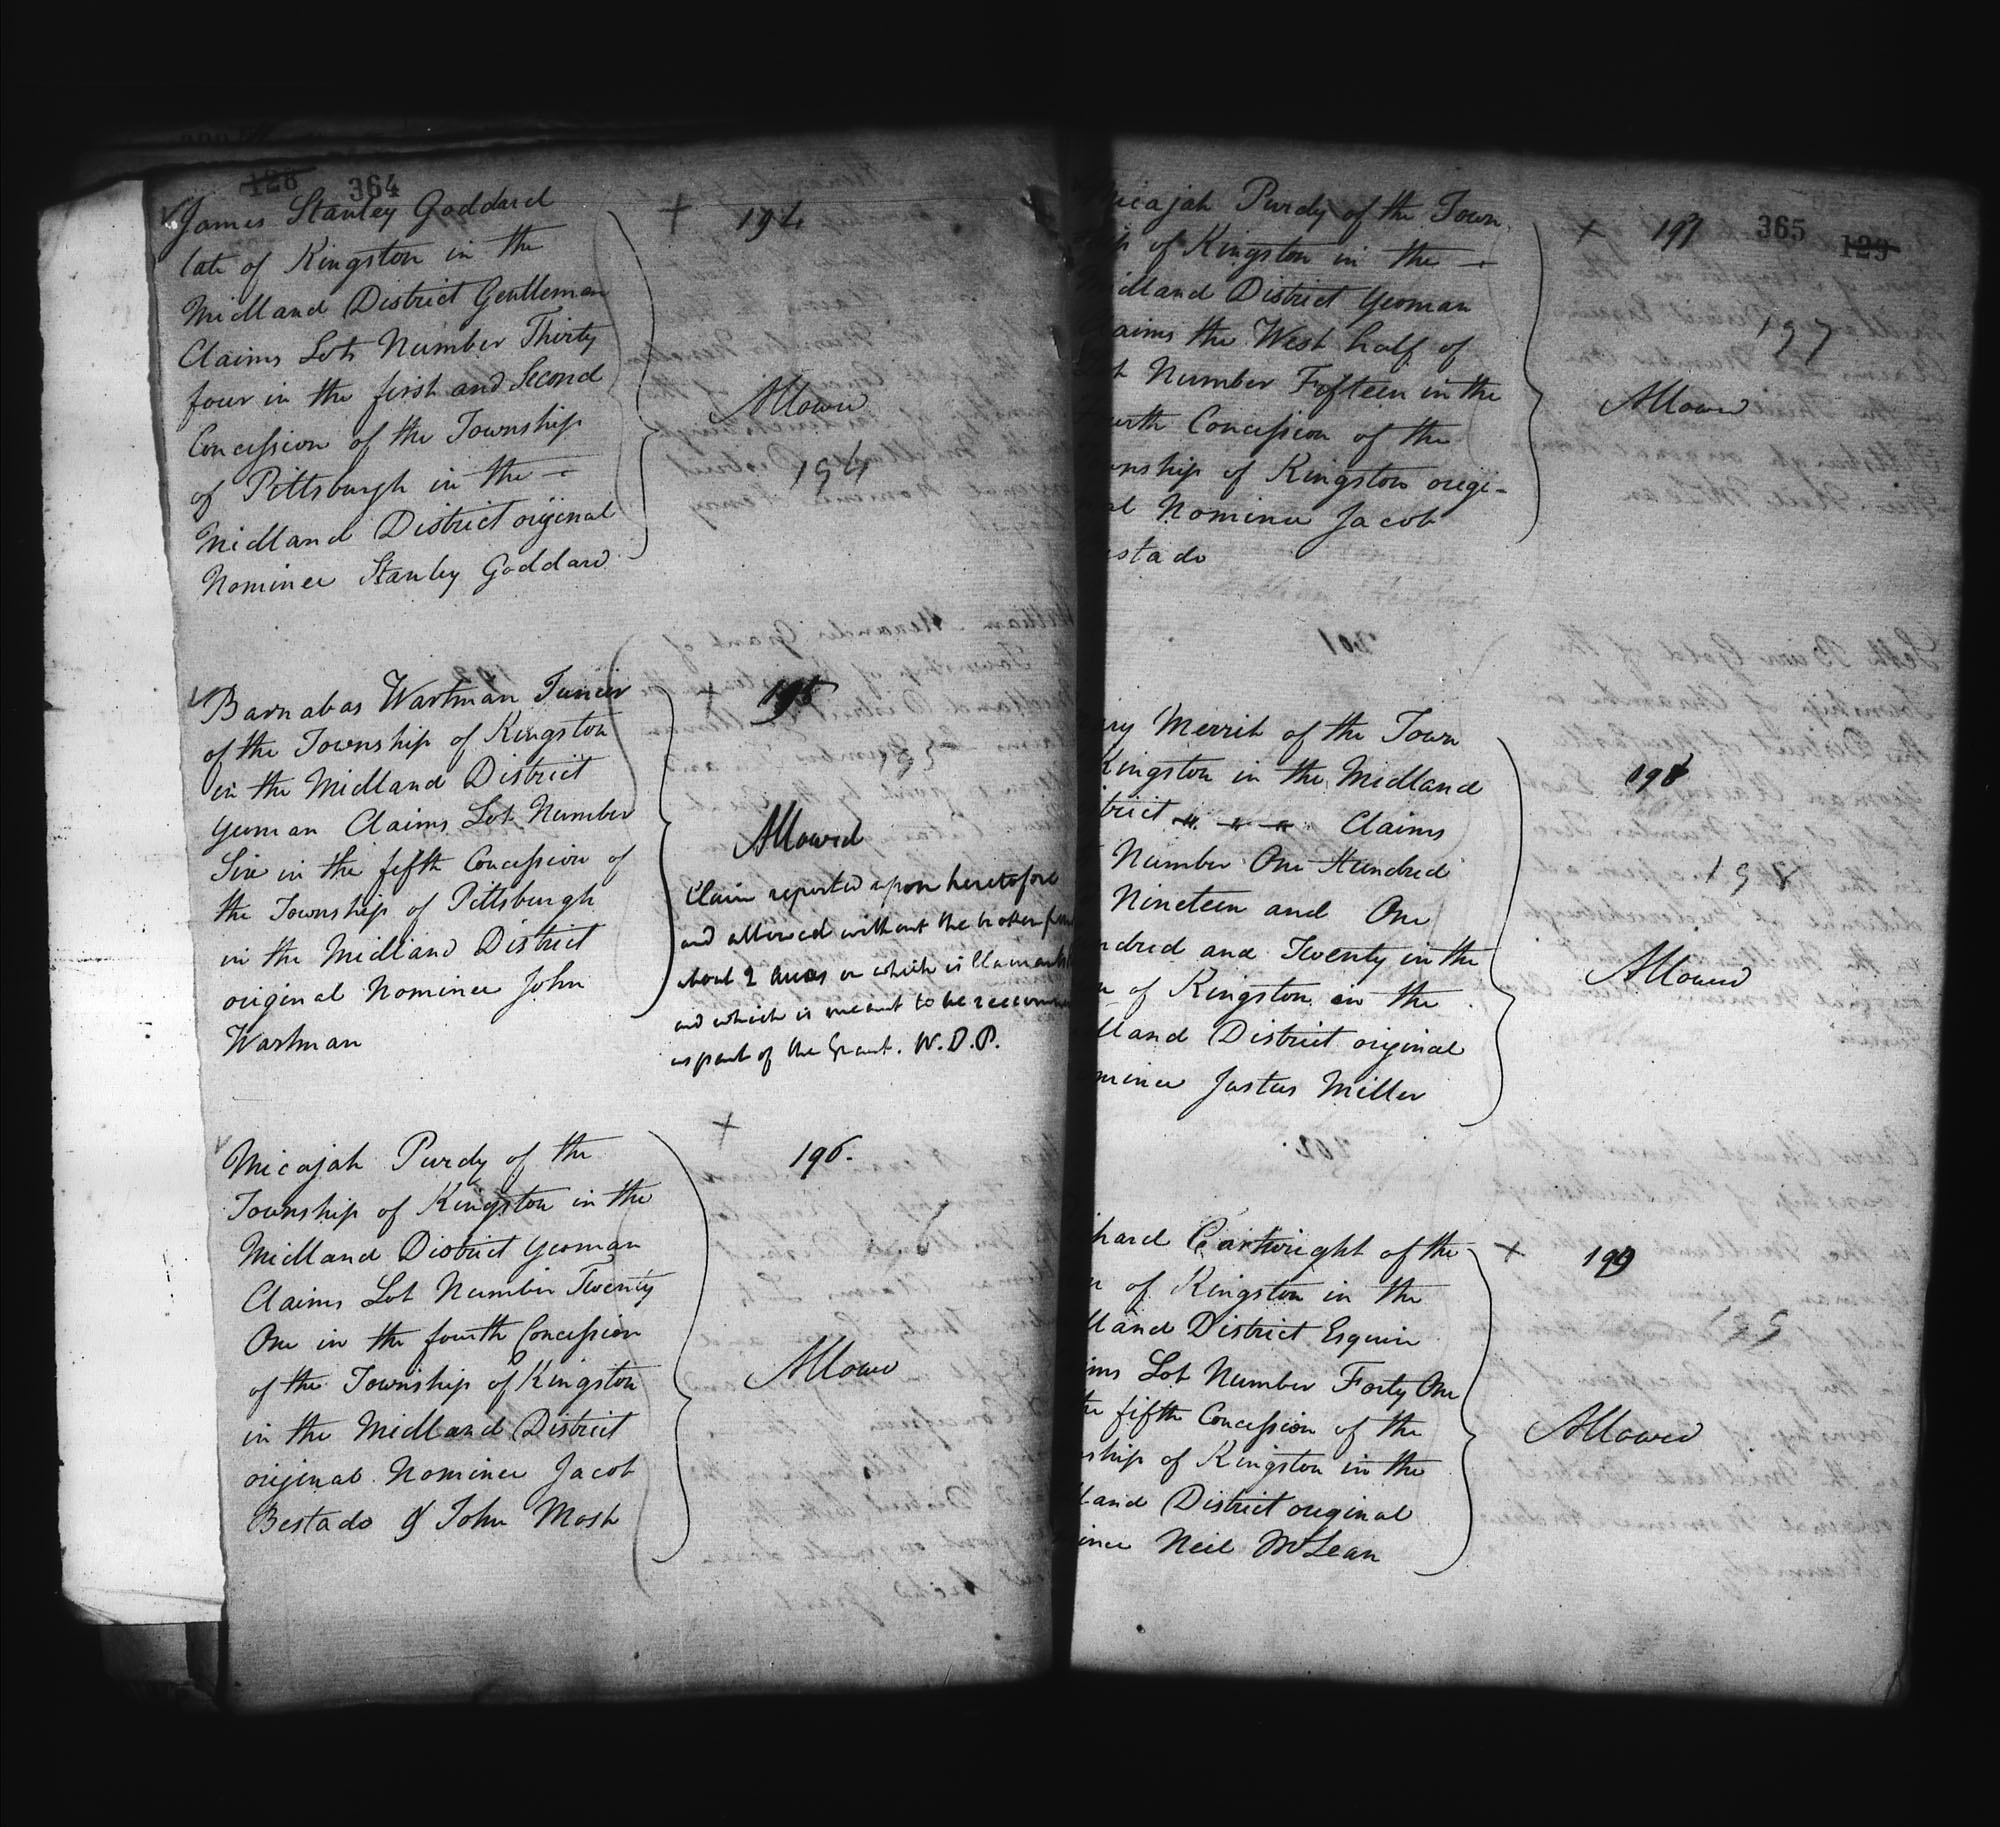 128 364
James Stanley Goddard
late of Kingston in the
Midland District Gentleman
Claims Lots Number Thirty
four in the first and Second
Concession of the Township
of Pittsburgh in the
Midland District original
Nominee Stanley Goddard
+ 194
Allowed
194
Barnabas Wartman Junior
of the Township of Kingston
in the Midland District
Yeoman Claims Lot Number
Six in the fifth Concession of
the Township of Pittsburgh
in the Midland District
original Nominee John
Wartman
195
Allowed
Claim reported upon heretofore
and allowed without the broken
about 2 acres on which is
and which is meant to be
as part of the Grant. W.D.P.
Micajah Purdy of the
Township of Kingston in the
Midland District Yeoman
Claims Lot Number Twenty
One in the fourth Concession
of the Township of Kingston
in the Midland District
original Nominee Jacob
Bestado & John Mosh
+
196.
Allowed
365 129
icajah Purdy of the Town
ip of Kingston in the
idland District Yeoman
aims the West half of
Number Fifteen in the
urth Concession of the
wnship of Kingston origi-
al Nominee Jacob
stado
+ 197
197
Allowed
301
ry Merrit of the Town
Kingston in the Midland
trict " " " Claims
Number One Hundred
Nineteen and One
ndred and Twenty in the
n of Kingston in the
lland District original
minee Justus Miller
198
198
Allowed
302
hard Cartwright of the
n of Kingston in the
lland District Esquire
ims Lot Number Forty One
he fifth Concession of the
ship of Kingston in the
land District original
inee Neil McLean
+ 199
199
Allowed